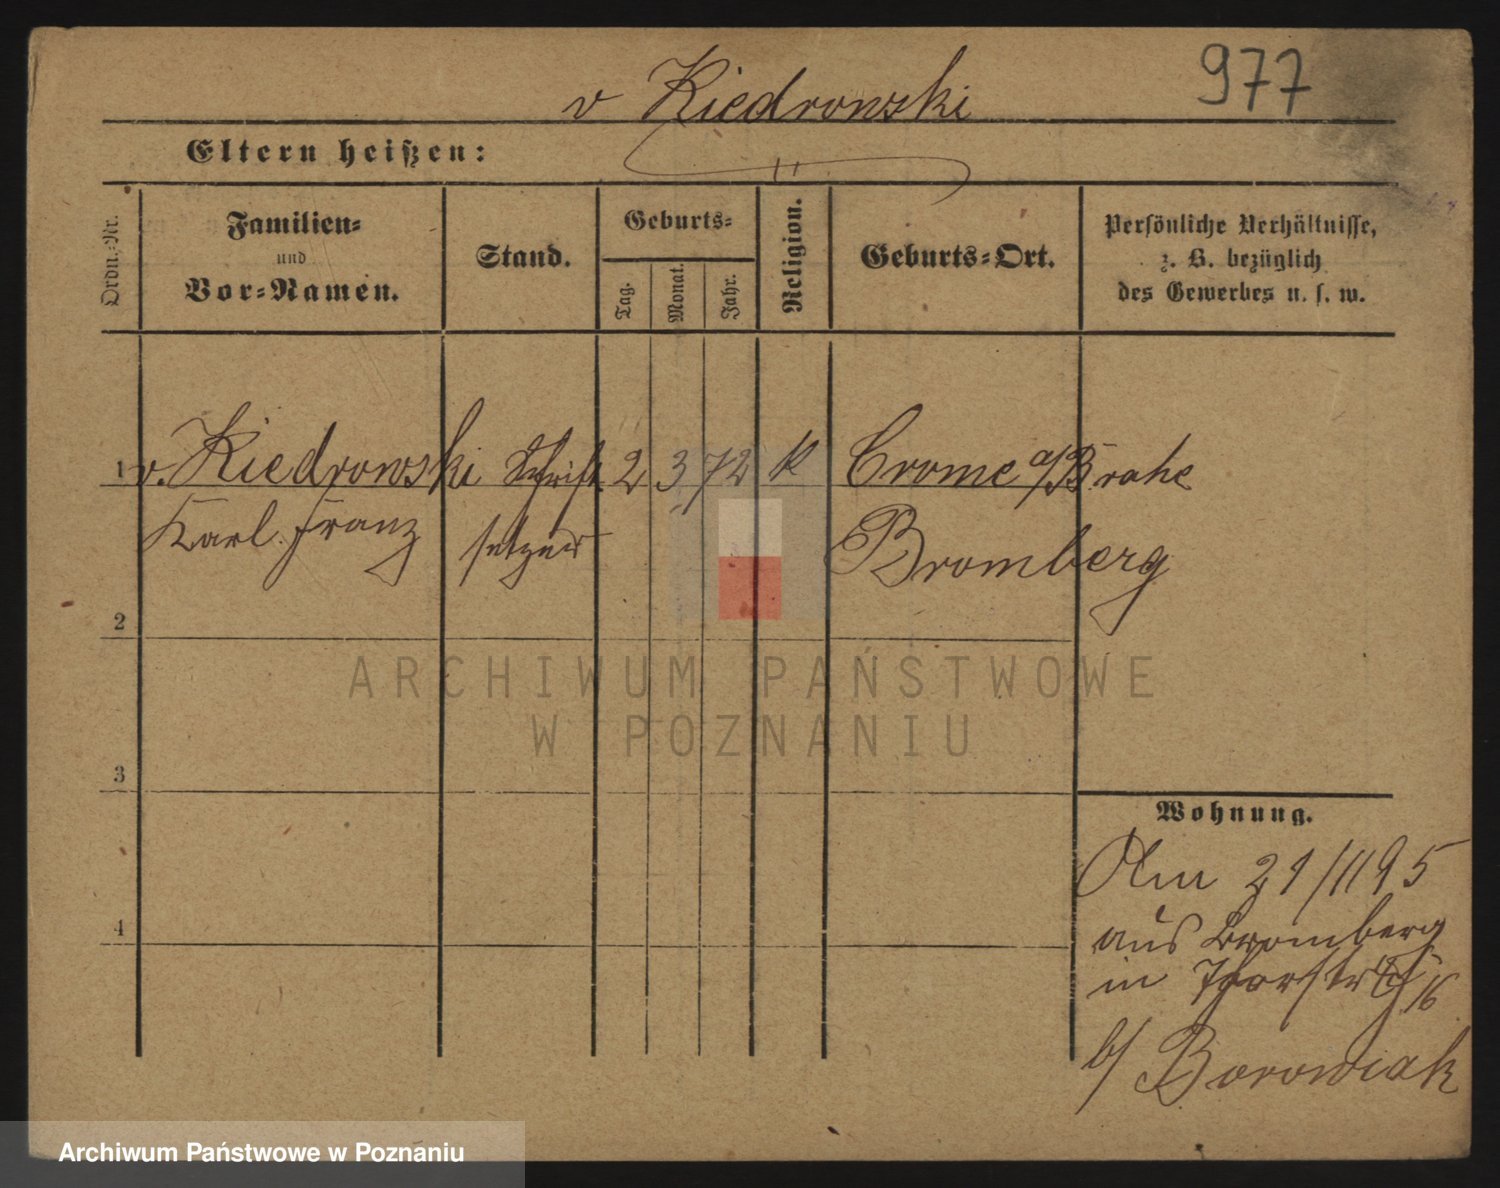 v Kiedrowski
977
Eltern heißen:
Ordn.-Nr.
Familien-
und
Vor-Namen.
Stand.
Geburts-
Tag.
Monat.
Jahr.
Religion.
Geburts-Ort.
Persönliche Verhältnisse,
z. B. bezüglich
des Gewerbes u. s. w.
1 v. Kiedrowski Schrift 2 3 72 k Crome a/Brahe
Karl Franz setzer Bromberg
2
3
4
Wohnung.
Am 21/11 95
aus Bromberg
in 16
b/ Borowiak
ARCHIWUM PAŃSTWOWE
W POZNANIU
Archiwum Państwowe w Poznaniu